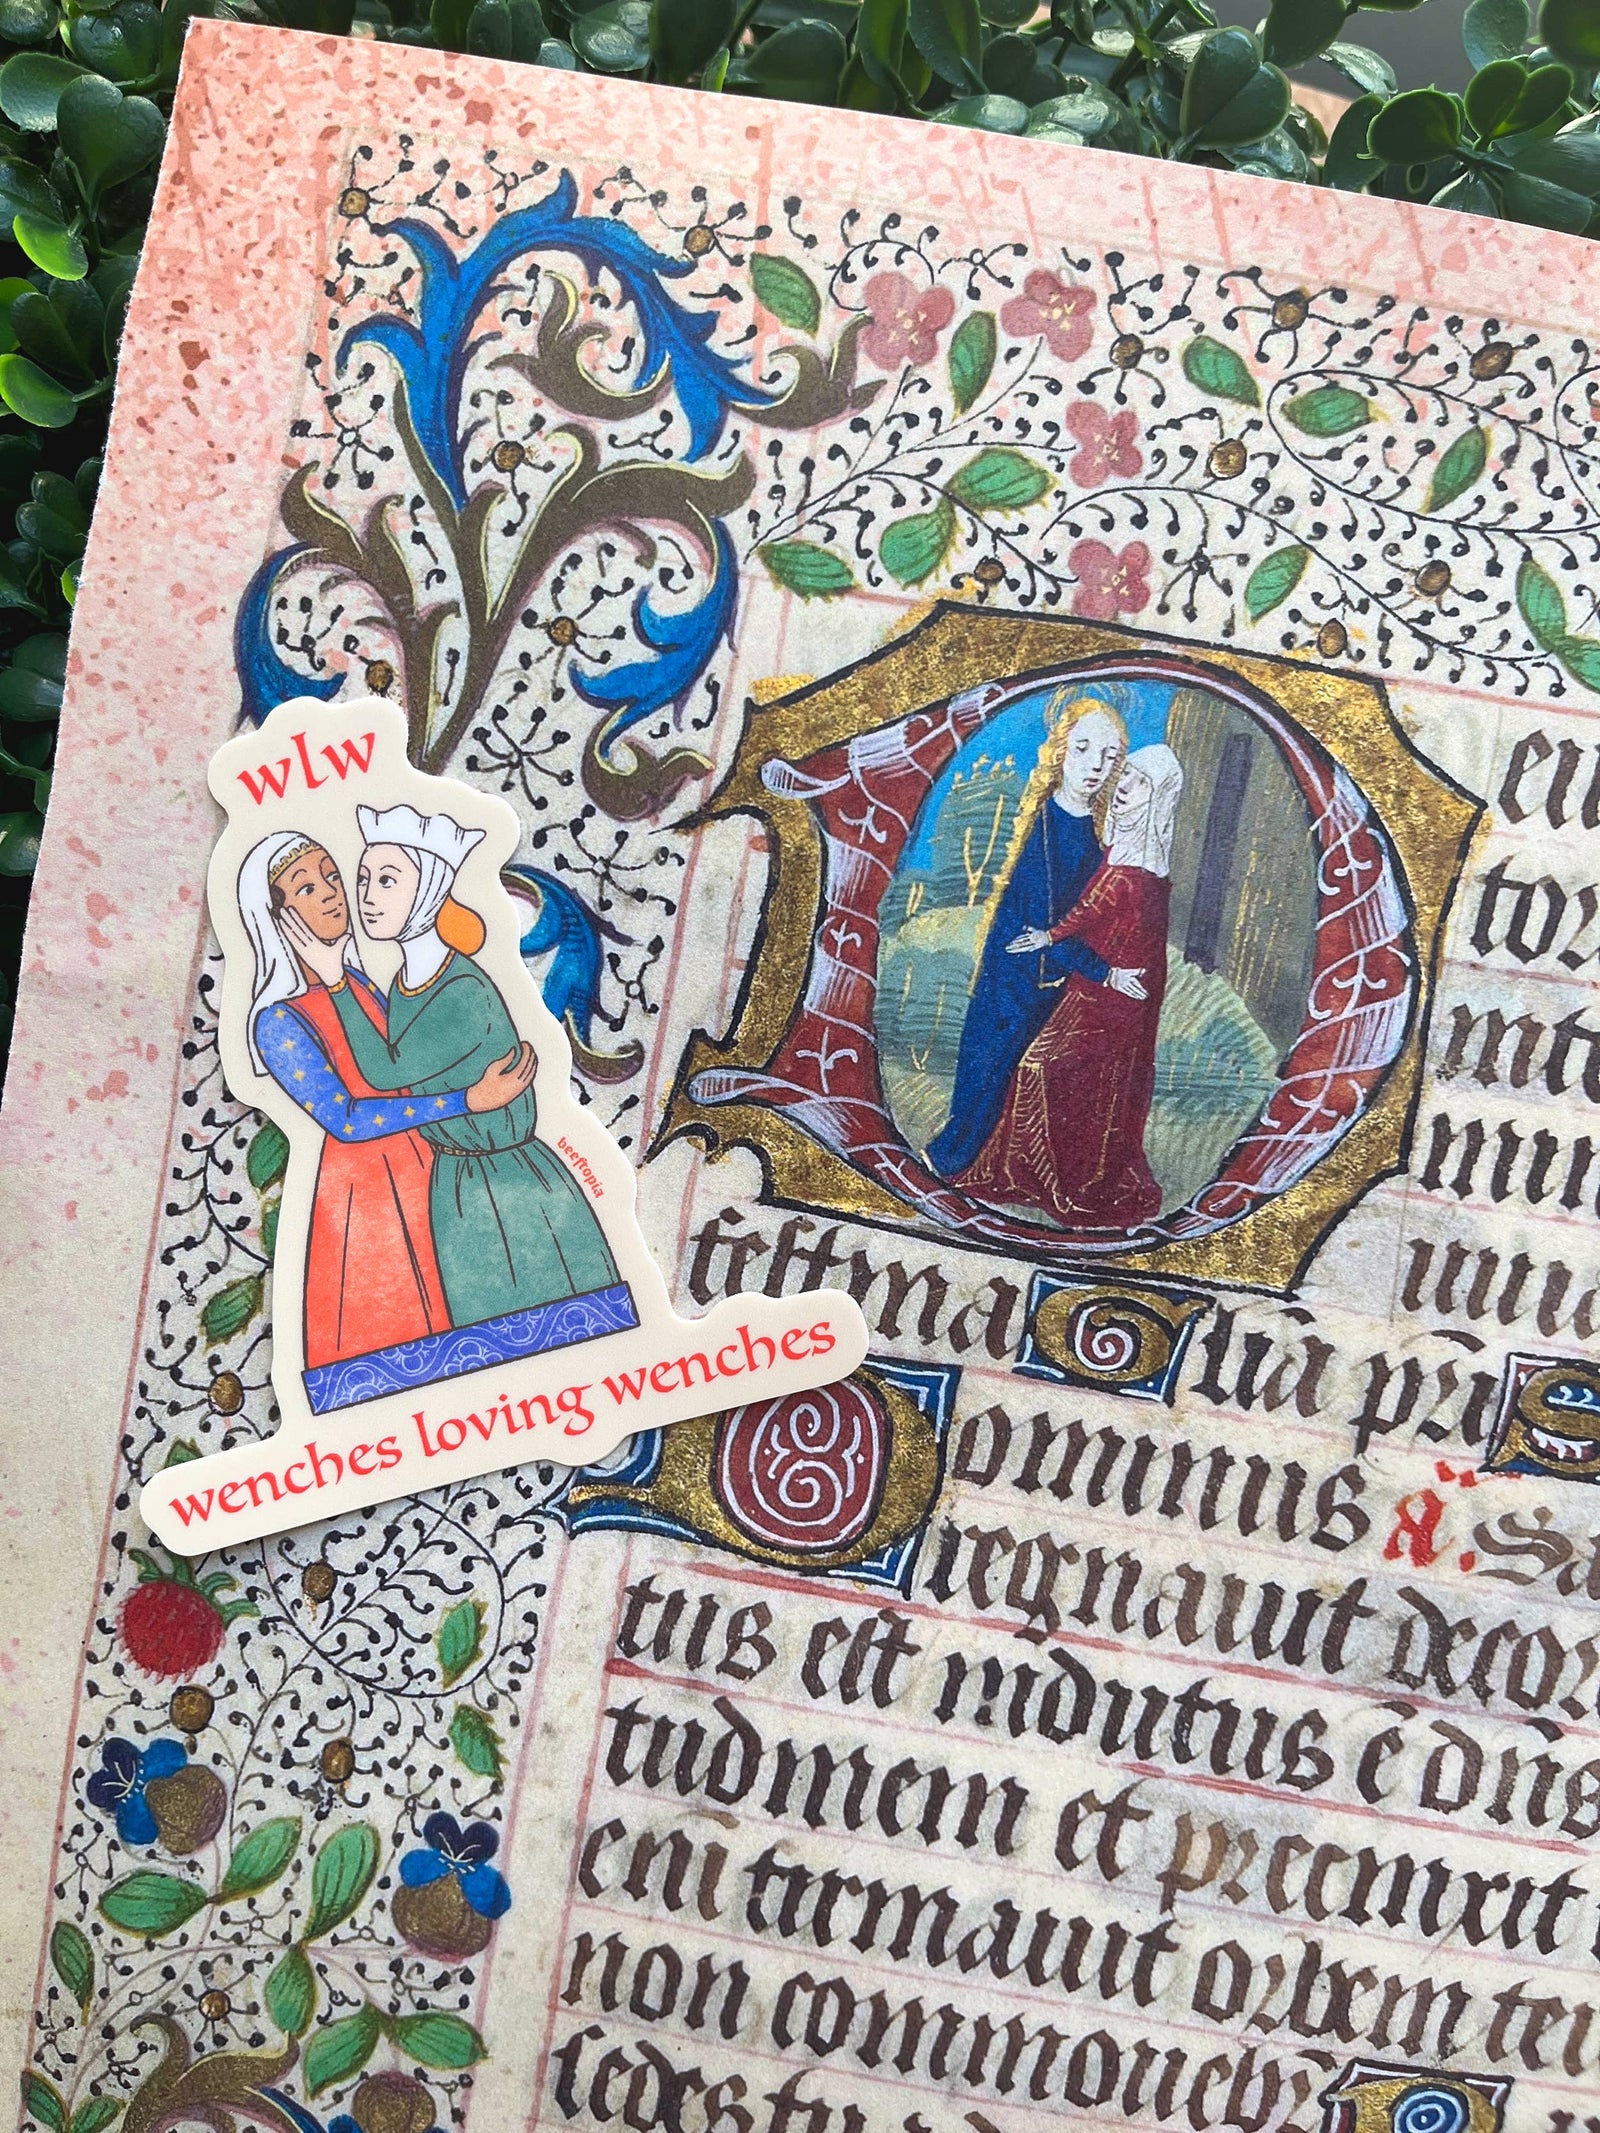 wlw
beeftopia
wenches loving wenches
festina Glia pri S
Dominus
regnauit decor
tus est indutus ē dñs
tudinem et precinxit
eni firmauit orbem ter
non commouebr
sedes tu